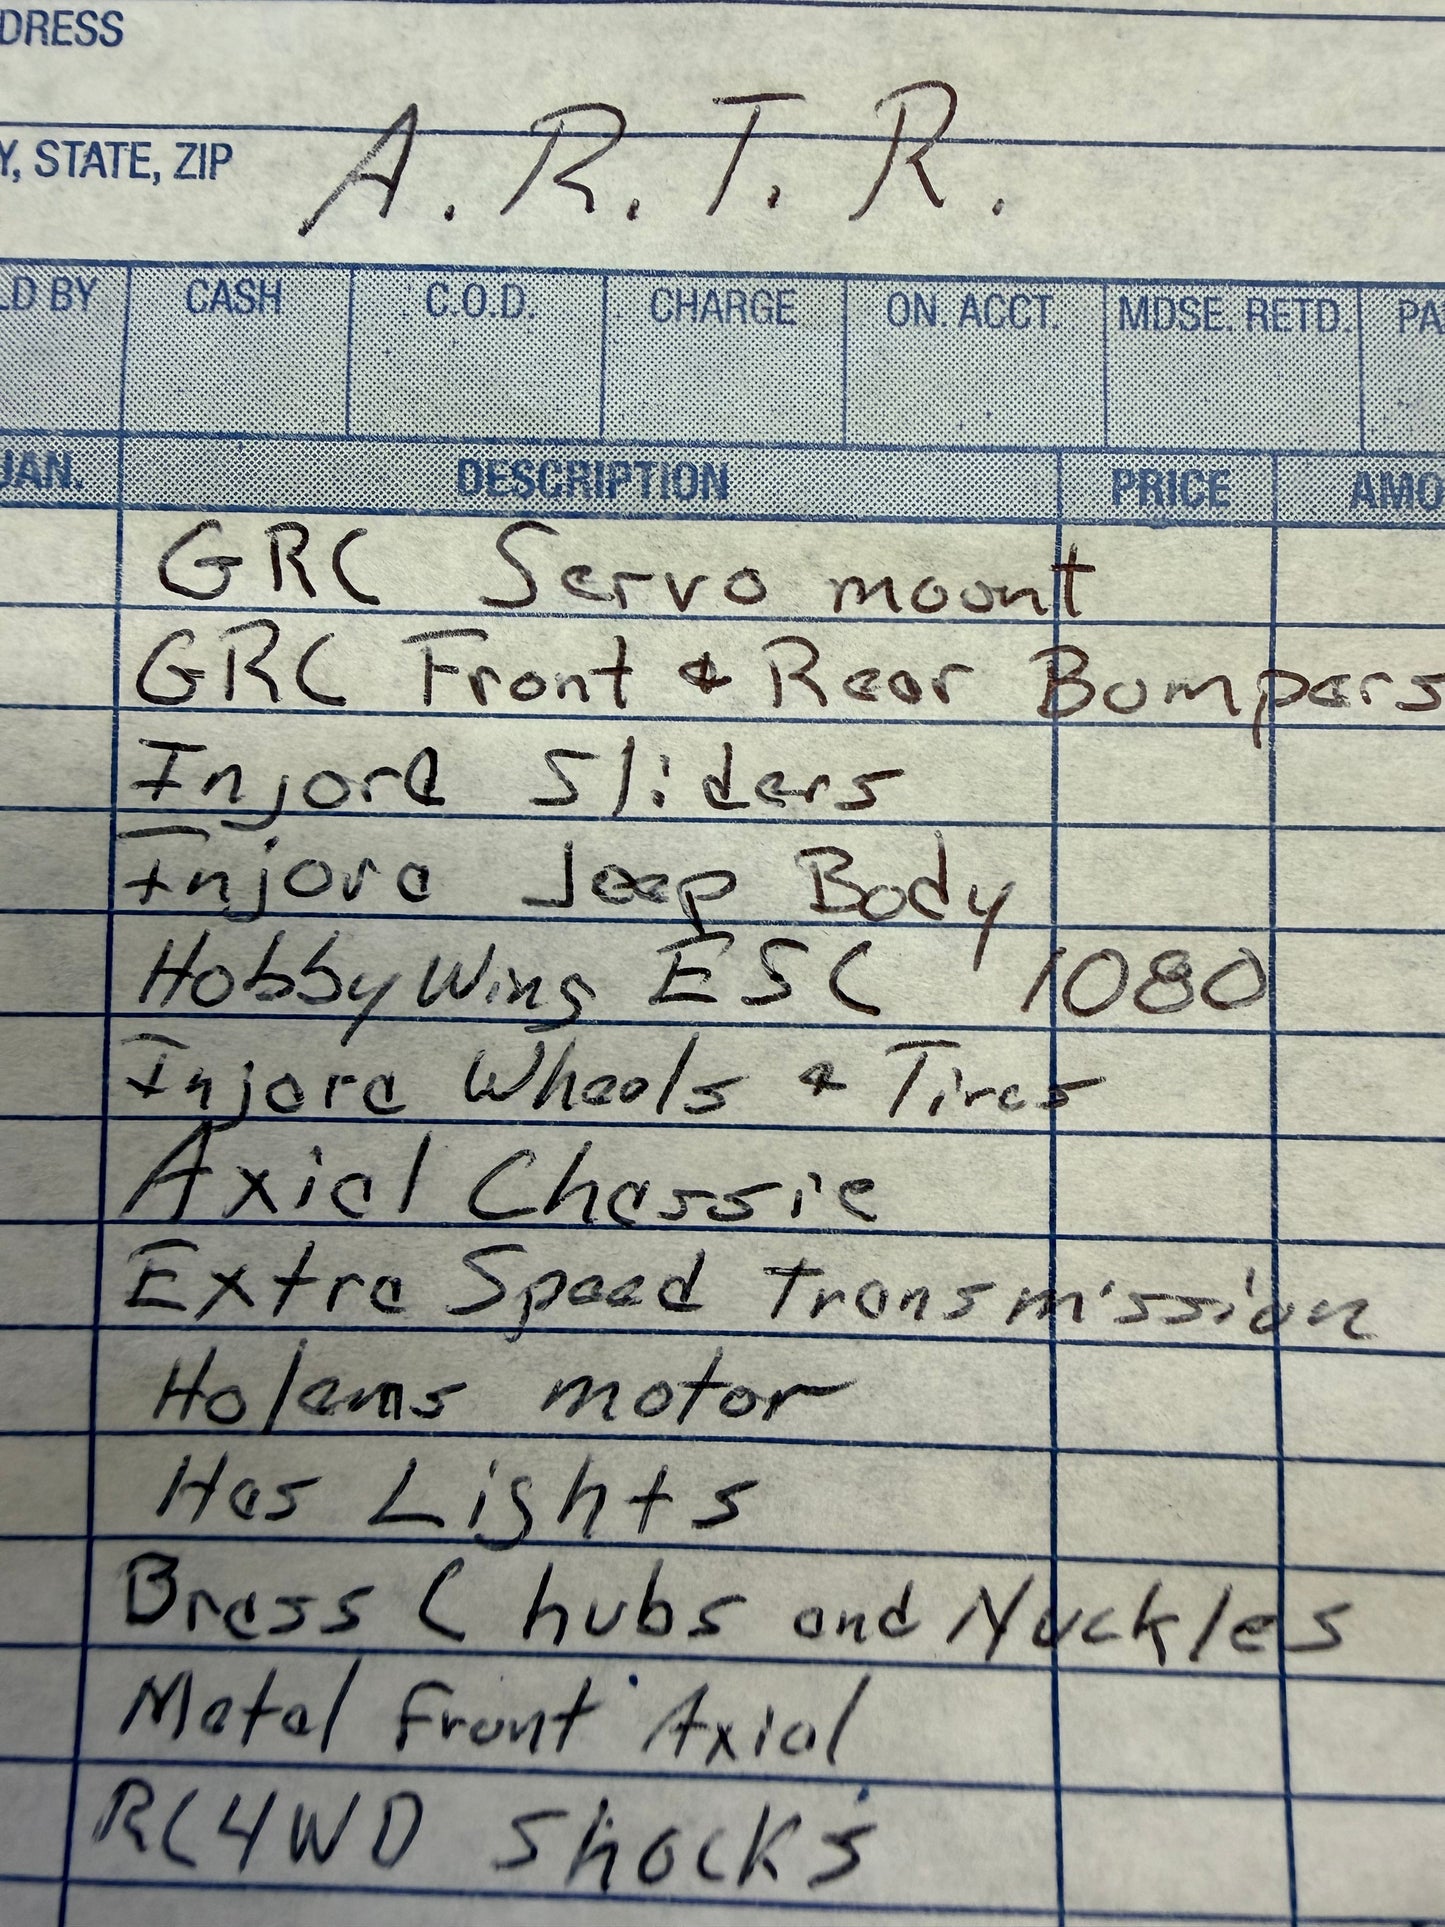 DRESS
A. R. T. R.
Y, STATE, ZIP
LD BY CASH C.O.D. CHARGE ON. ACCT. MDSE. RETD. PA
UAN. DESCRIPTION PRICE AMO
GRC Servo mount
GRC Front & Rear Bumpers
Injora Sliders
Injora Jeep Body
HobbyWing ESC 1080
Injora Wheels & Tires
Axial Chassie
Extra Speed Transmission
Holems motor
Has Lights
Brass C hubs and Nuckles
Metal Front Axial
RC4WD Shocks